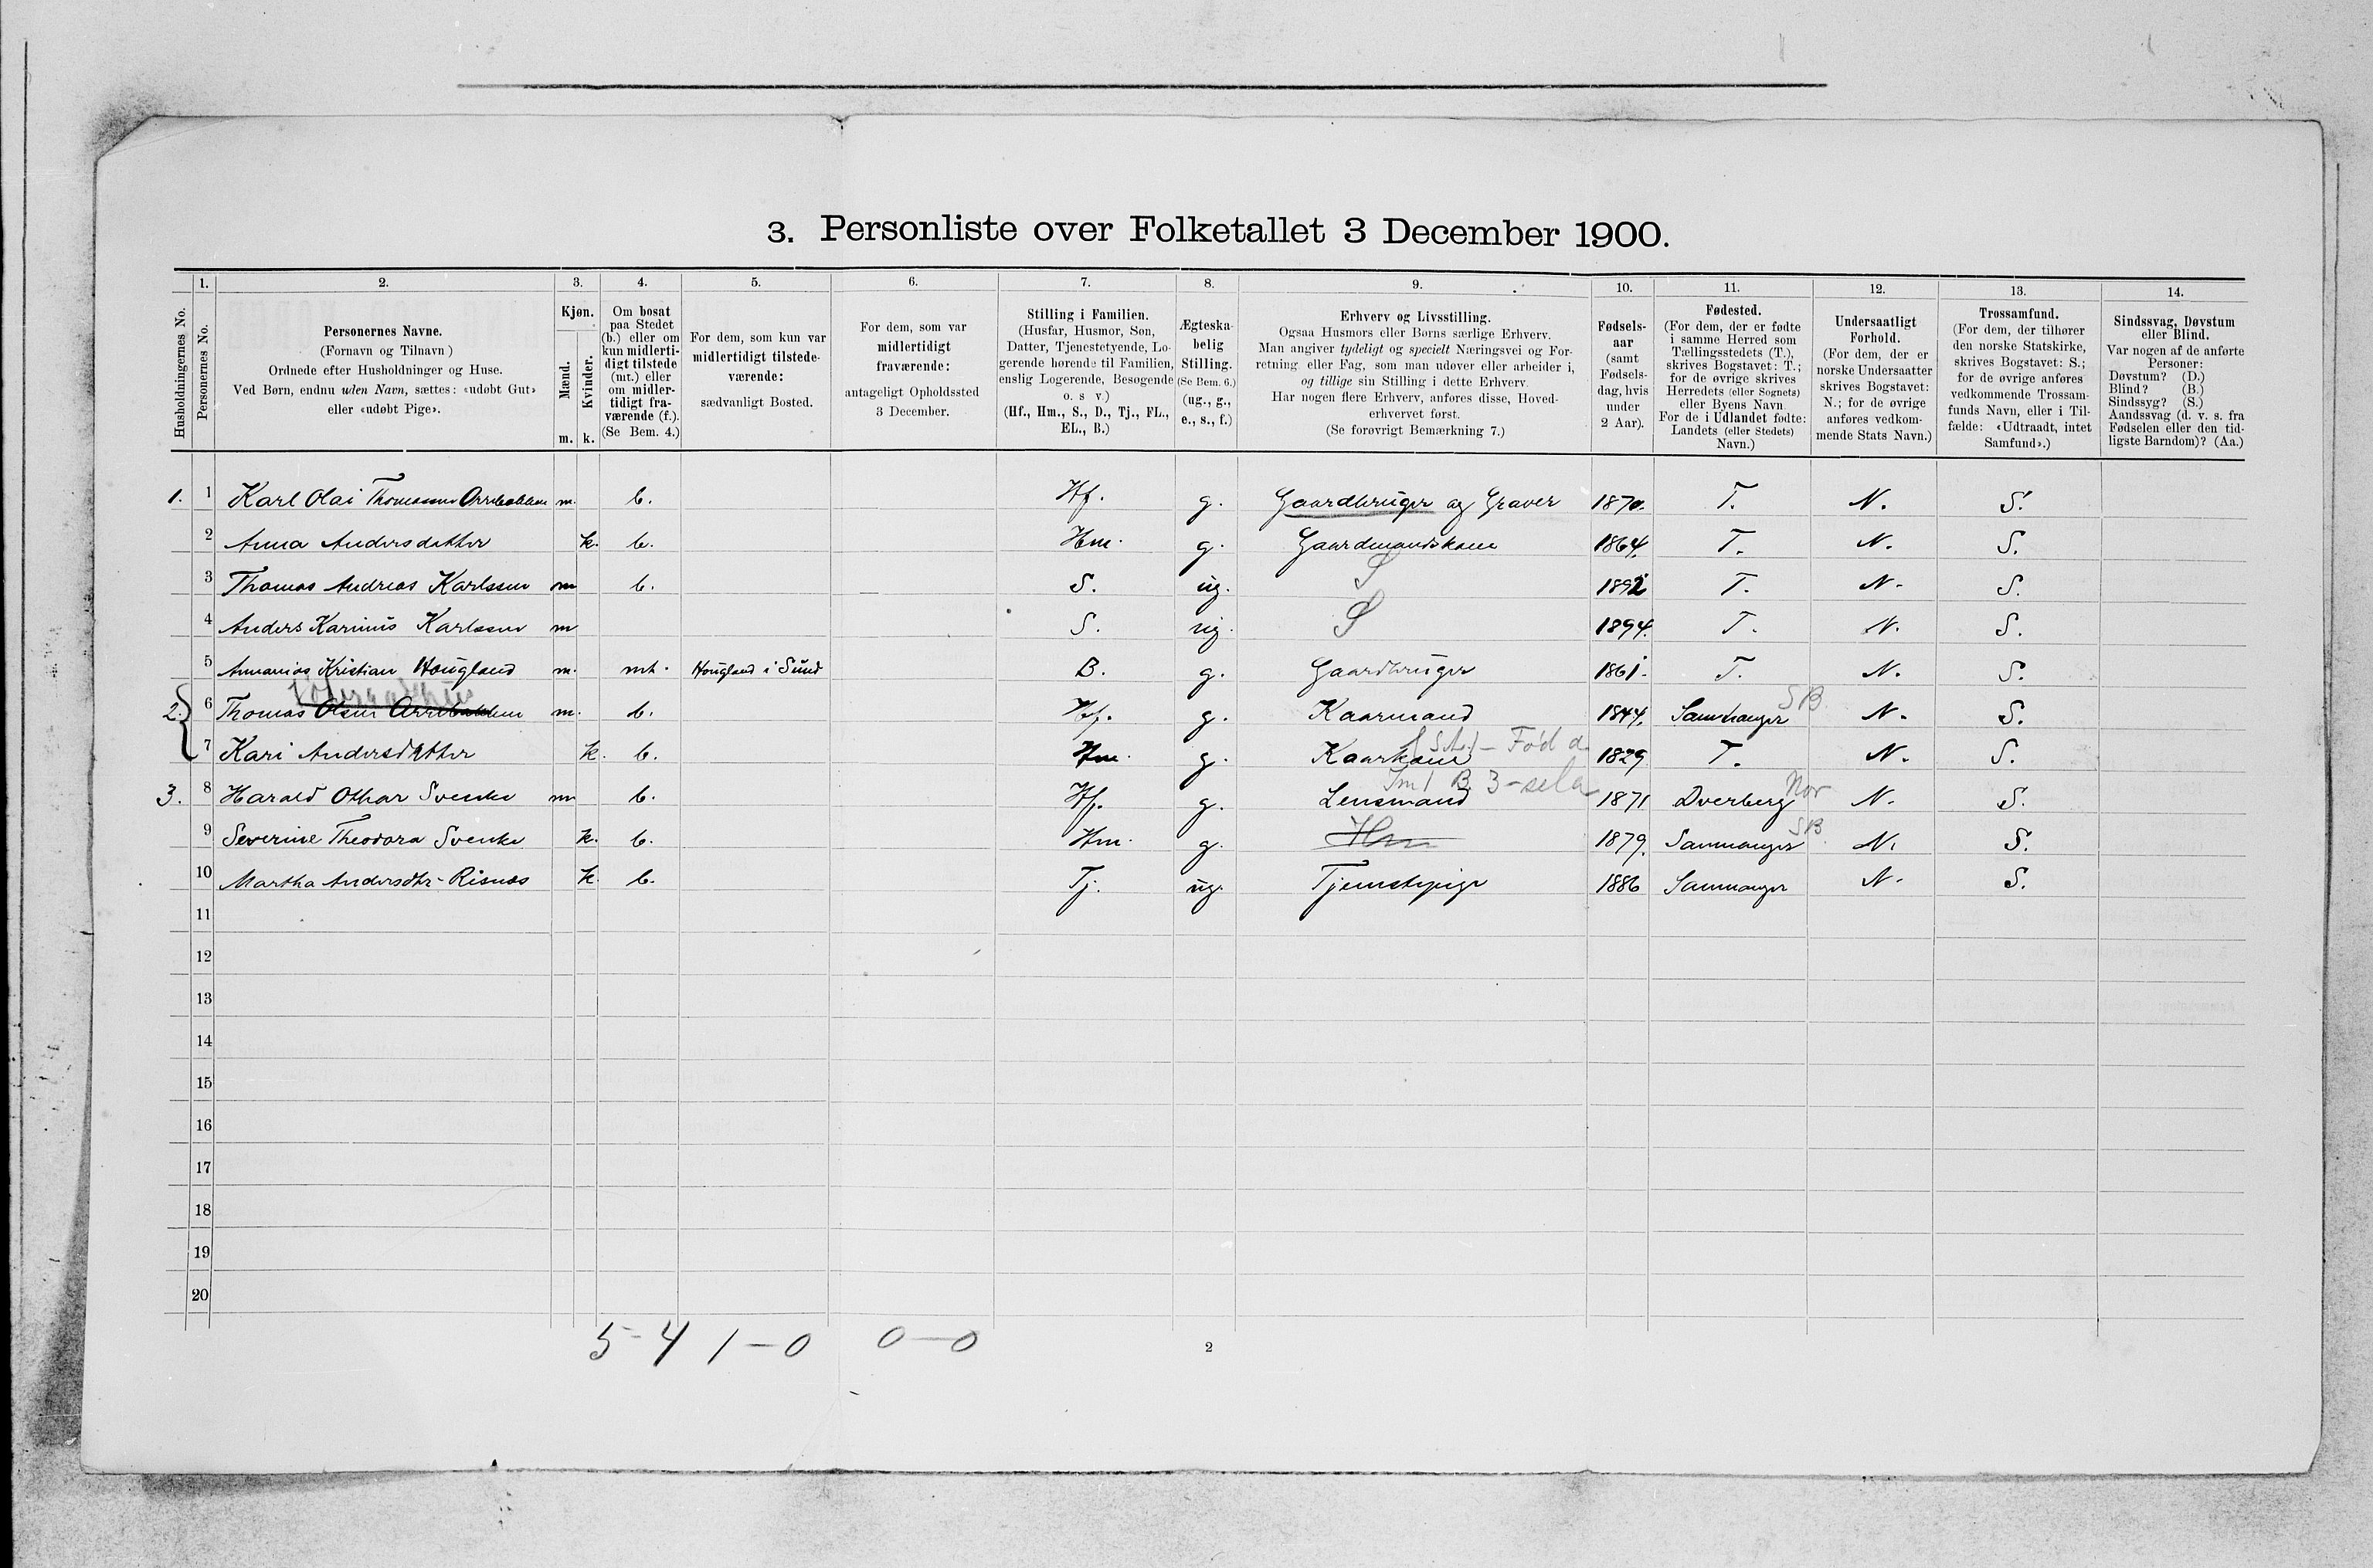 3. Personliste over Folketallet 3 December 1900.
Husholdningernes No.
1. Personernes No.
2. Personernes Navne.
(Fornavn og Tilnavn)
Ordnede efter Husholdninger og Huse.
Ved Børn, endnu uden Navn, sættes: «udøbt Gut»
eller «udøbt Pige».
3. Kjøn.
Mænd. Kvinder.
m. k.
4. Om bosat
paa Stedet
(b.) eller om
kun midlerti-
digt tilstede
(mt.) eller
om midler-
tidigt fra-
værende (f.).
(Se Bem. 4.)
5. For dem, som kun var
midlertidigt tilstede-
værende:
sædvanligt Bosted.
6. For dem, som var
midlertidigt
fraværende:
antageligt Opholdssted
3 December.
7. Stilling i Familien.
(Husfar, Husmor, Søn,
Datter, Tjenestetyende, Lo-
gerende hørende til Familien,
enslig Logerende, Besøgende
o. s v.)
(Hf., Hm., S., D., Tj., FL.,
EL., B.)
8. Ægteska-
belig
Stilling.
(Se Bem. 6.)
(ug., g.,
e., s., f.)
9. Erhverv og Livsstilling.
Ogsaa Husmors eller Børns særlige Erhverv.
Man angiver tydeligt og specielt Næringsvei og For-
retning eller Fag, som man udøver eller arbeider i,
og tillige sin Stilling i dette Erhverv.
Har nogen flere Erhverv, anføres disse, Hoved-
erhvervet først.
(Se forøvrigt Bemærkning 7.)
10. Fødsels-
aar
(samt
Fødsels-
dag, hvis
under
2 Aar).
11. Fødested.
(For dem, der er fødte
i samme Herred som
Tællingsstedets (T.),
skrives Bogstavet: T.;
for de øvrige skrives
Herredets (eller Sognets)
eller Byens Navn.
For de i Udlandet fødte:
Landets (eller Stedets)
Navn.)
12. Undersaatligt
Forhold.
(For dem, der er
norske Undersaatter
skrives Bogstavet:
N.; for de øvrige
anføres vedkom-
mende Stats Navn.)
13. Trossamfund.
(For dem, der tilhører
den norske Statskirke,
skrives Bogstavet: S.;
for de øvrige anføres
vedkommende Trossam-
funds Navn, eller i Til-
fælde: «Udtraadt, intet
Samfund».)
14. Sindssvag, Døvstum
eller Blind.
Var nogen af de anførte
Personer:
Døvstum? (D.)
Blind? (B.)
Sindssyg? (S.)
Aandssvag (d. v. s. fra
Fødselen eller den tid-
ligste Barndom)? (Aa.)
1. 1 Karl Olai Thomassen m. b. Hf. g. Gaardbruger og Graver 1870. T. N. S.
2 Anna Andersdatter k. b. Hm. g. Gaardmandskone 1864. T. N. S.
3 Thomas Andreas Karlssen m b. S. ug. S 1892 T. N. S.
4 Anders Karinus Karlssen m S. ug. S 1894. T. N. S.
5 Annanias Kristian Hougland m. mt. Hougland i Sund B. g. Gaardbruger 1861. T. N. S.
2. 6 Thomas Olsen m. b. Hf. g. Kaarmand 1844. Samnanger SB N. S.
7 Kari Andersdatter k. b. Hm. g. Kaarkone Fød a 1829 T. N. S.
3. 8 Harald Othar Svenke m b. Hf. g. Lensmand 1871 Dverberg Nor N. S.
9 Severine Theodora Svenke k. b. Hm. g. Hm 1879. Samnanger SB N. S.
10 Martha Andersdtr. Risnes k. b. Tj. ug. Tjenestepige 1886 Samnanger N. S.
11
12
13
14
15
16
17
18
19
20
5-4 1-0 0-0
2